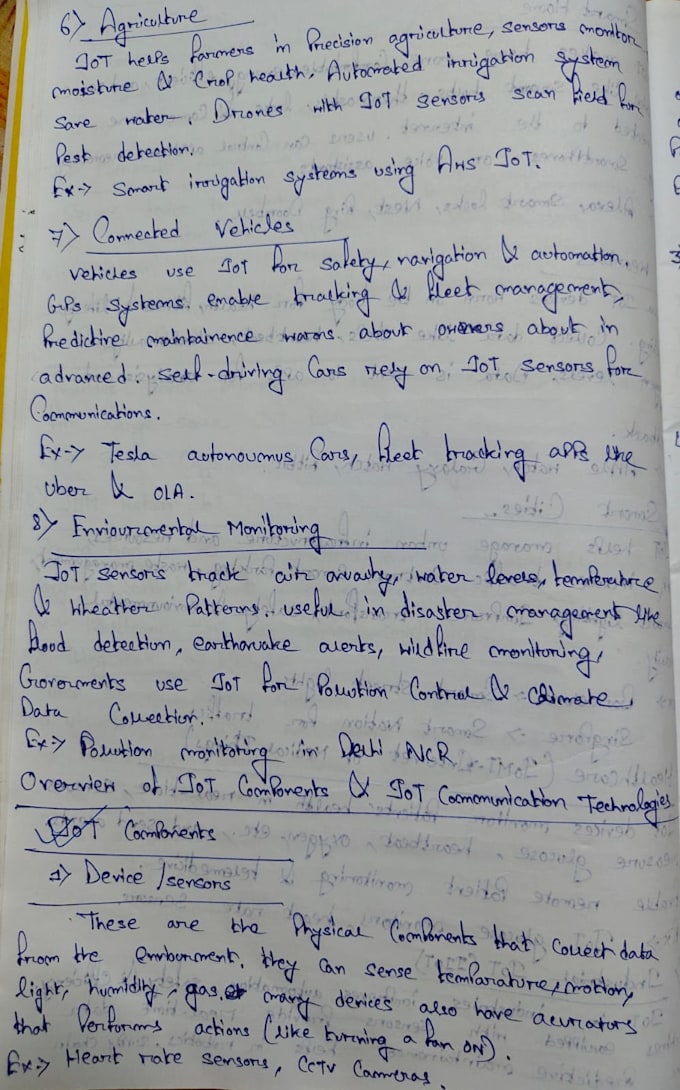 6) Agriculture
IoT helps farmers in Precision agriculture, sensors monitor
moisture & Crop health. Automated irrigation system
save water. Drones with IoT sensors scan field for
Pest detection.
Ex-> Smart irrigation systems using AWS IoT.
7) Connected Vehicles
Vehicles use IoT for safety, navigation & automation.
GPS systems enable tracking & fleet management,
Predictive maintainence warns about owners about in
advanced. Self-driving Cars rely on IoT sensors for
Communications.
Ex-> Tesla autonoumus Cars, fleet tracking apps like
Uber & OLA.
8) Enviourmental Monitoring
IoT sensors track air quality, water levels, temperature
& wheather Patterns. useful in disaster management like
flood detection, earthquake alerts, wildfire monitoring,
Goverments use IoT for Pollution Control & Climate
Data Collection.
Ex-> Pollution monitoring in Delhi NCR
Overview of IoT Components & IoT Communication Technologies
IoT Components
1) Device / sensors
These are the Physical Components that collect data
from the environment. they can sense temparature, motion,
light, humidity, gas. many devices also have acurators
that Performs actions (like turning a fan ON).
Ex-> Heart rate sensors, CCTV Cameras.